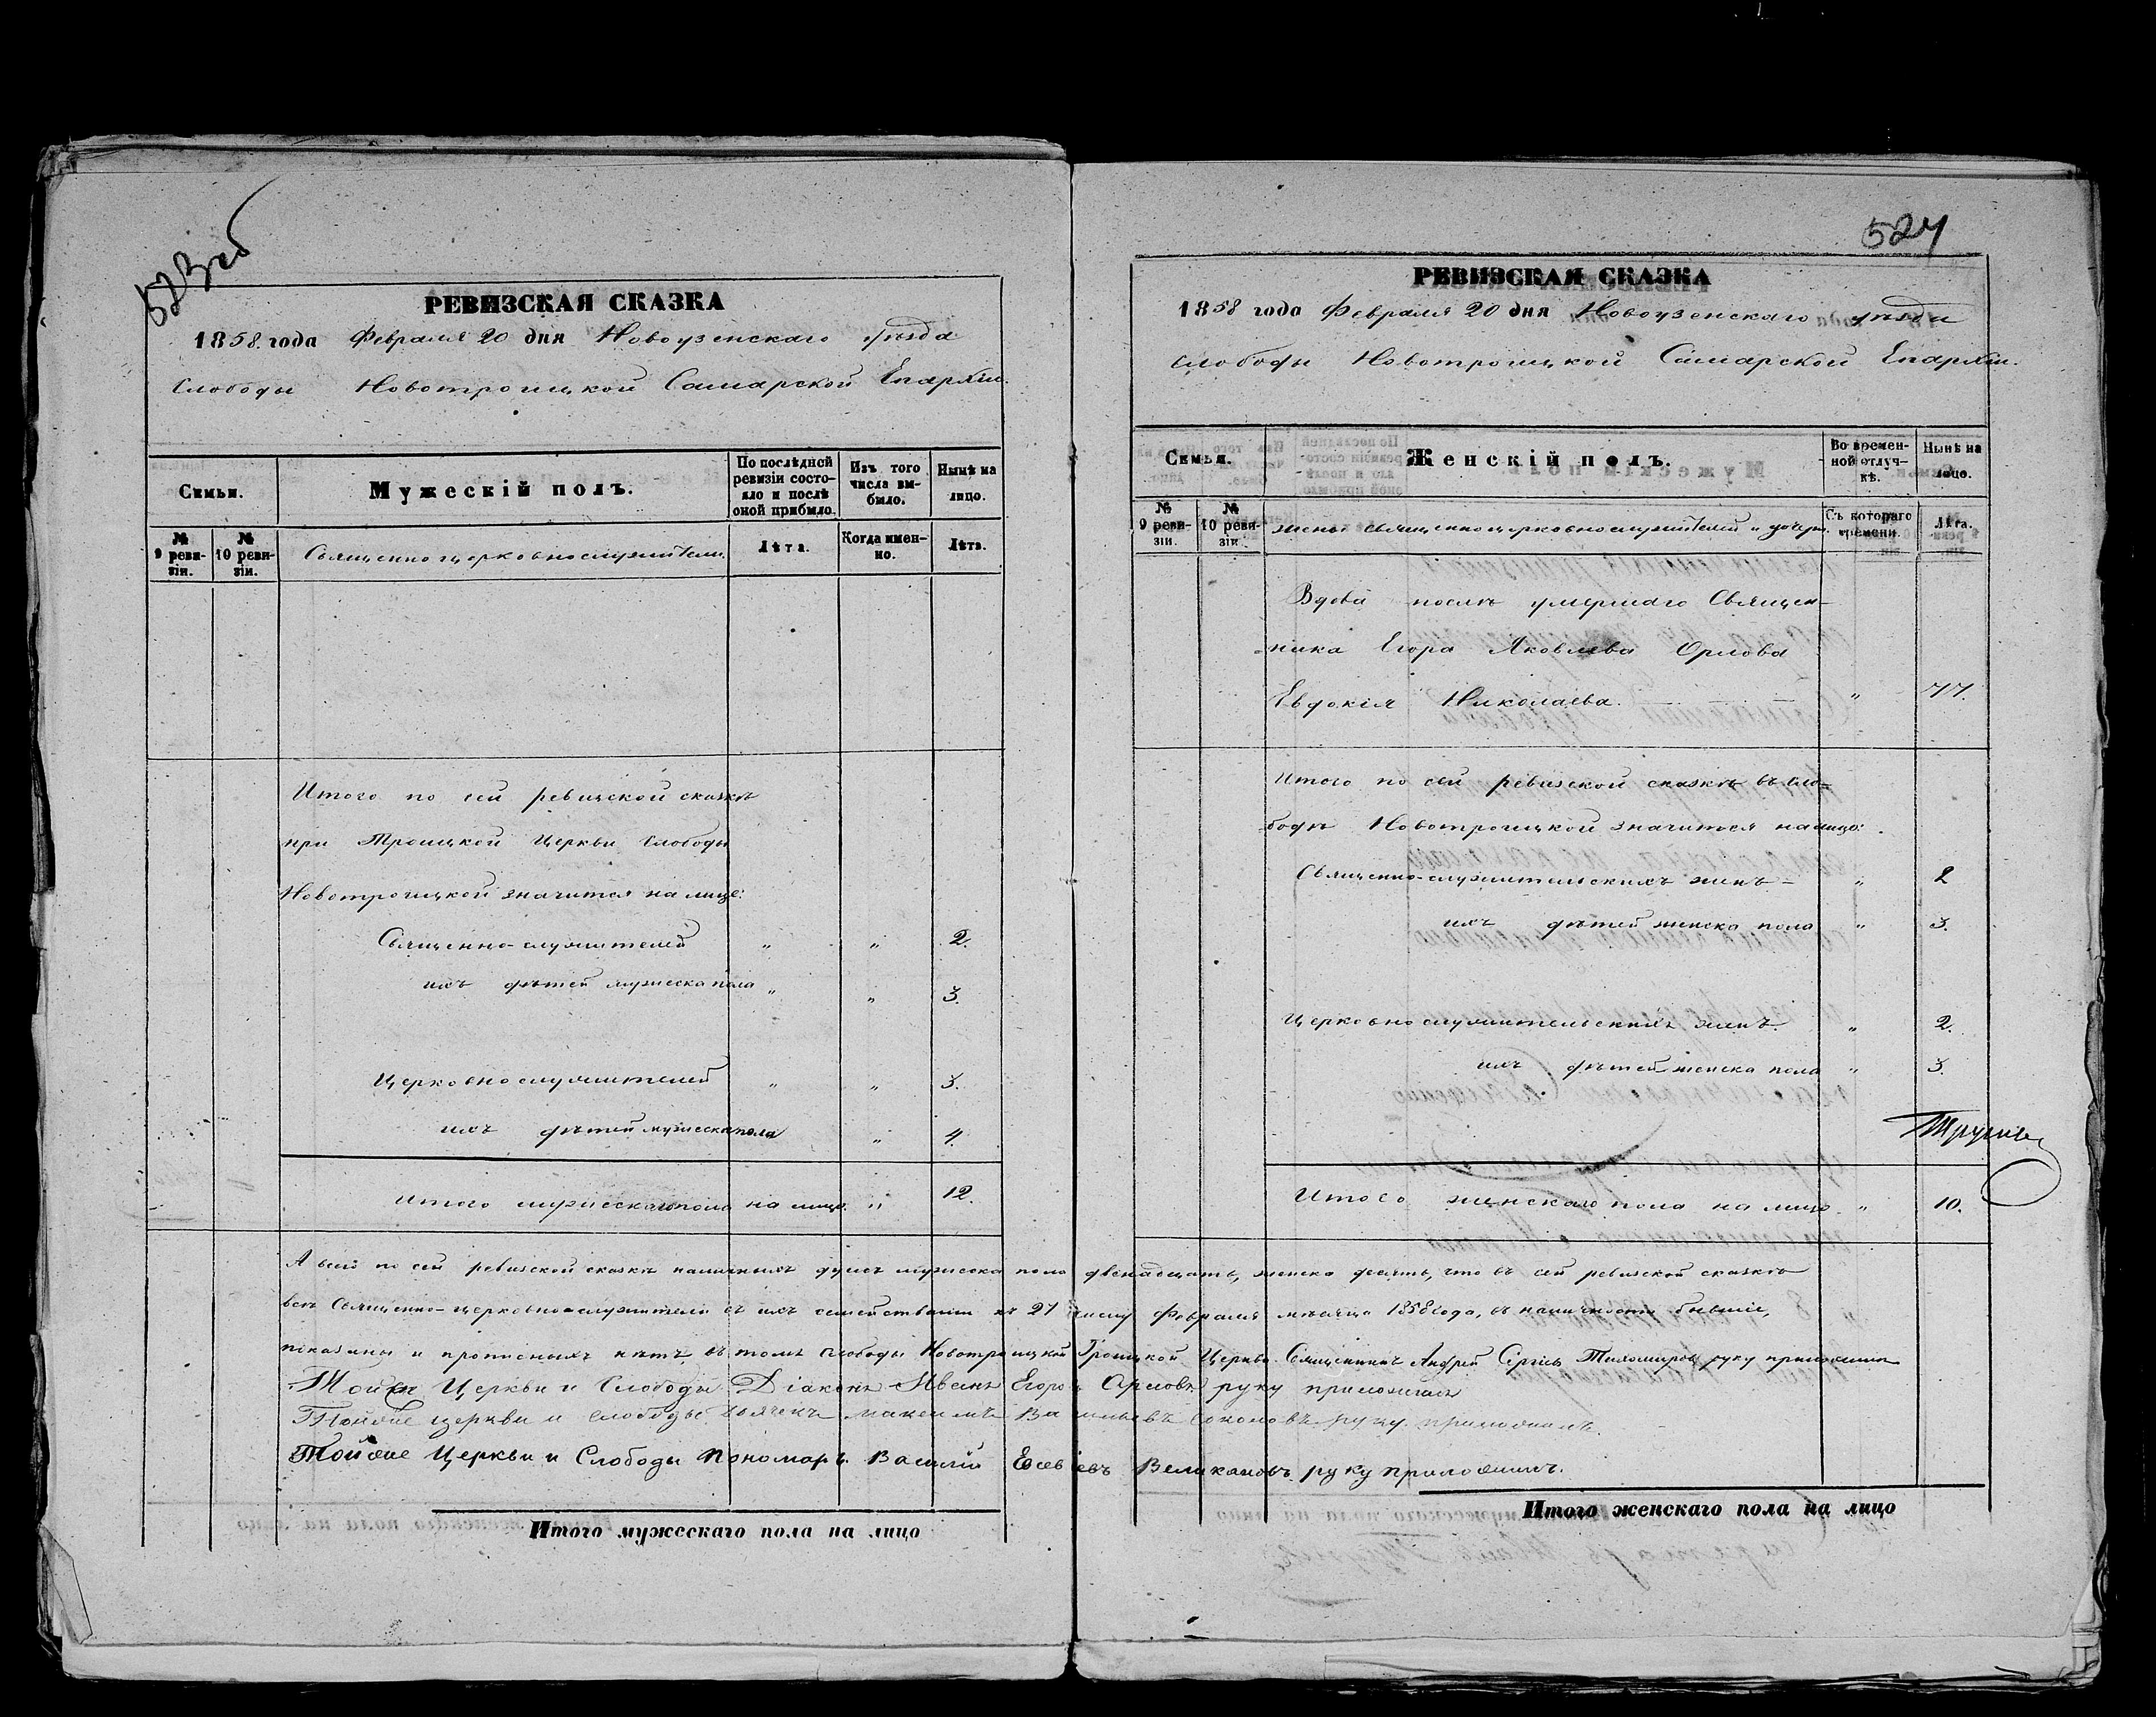 523 об
РЕВИЗСКАЯ СКАЗКА
1858. года Февраля 20 дня Новоузенскаго уѣзда
Слободы Новотроицкой Самарской Епархіи.
Семьи.
Мужескій полъ.
По послѣдней ревизіи состояло и послѣ оной прибыло.
Изъ того числа выбыло.
Нынѣ на лицо.
№ 9 ревизіи.
№ 10 ревизіи.
Священно церковнослужители.
Лѣта.
Когда именно.
Лѣта.
Итого по сей ревизской сказкѣ
при Троицкой Церкви Слободы
Новотроицкой значится на лице:
Священно-служителей " " 2.
ихъ дѣтей мужеска пола " " 3.
Церковнослужителей " " 3.
ихъ дѣтей мужеска пола " 4.
Итого мужескаго пола на лицо " 12.
524
РЕВИЗСКАЯ СКАЗКА
1858 года Февраля 20 дня Новоузенскаго уѣзда
слободы Новотроицкой Самарской Епархіи.
Семьи.
Женскій полъ.
Во временной отлучкѣ.
Нынѣ на лицо.
№ 9 ревизіи.
№ 10 ревизіи.
жены священно церковнослужителей и дочери.
Съ котораго времени.
Лѣта.
Вдова послѣ умершаго Священ-
ника Егора Яковлева Орлова
Евдокія Николаева. " 77.
Итого по сей ревизской сказкѣ въ Сло-
бодѣ Новотроицкой значится на лицо:
Священно-служительскихъ женъ - " 2
ихъ дѣтей женска пола " 3.
Церковнослужительскихъ женъ " 2.
ихъ дѣтей женска пола " 3.
Итого женскаго пола на лицо. " 10.
А всего по сей ревизской сказкѣ наличныхъ душъ мужеска пола двенадцать, женска десять, что въ сей ревизской сказкѣ
всѣ Священно-церковно-служители съ ихъ семействами къ 21 числу Февраля мѣсяца 1858 года, въ наличности бывшіе,
показаны и прописныхъ нѣтъ, въ томъ Слободы Новотроицкой Троицкой Церкви Священникъ Андрей Сергіевъ Тихомировъ руку приложилъ
Той же Церкви и Слободы Діаконъ Иванъ Егоровъ Орловъ руку приложилъ
Тойже церкви и слободы Дьячекъ Максимъ Васильевъ Соколовъ руку приложилъ.
Тойже Церкви и Слободы Пономарь Василій Евсевіевъ Великановъ руку приложилъ.
Итого мужескаго пола на лицо
Итого женскаго пола на лицо